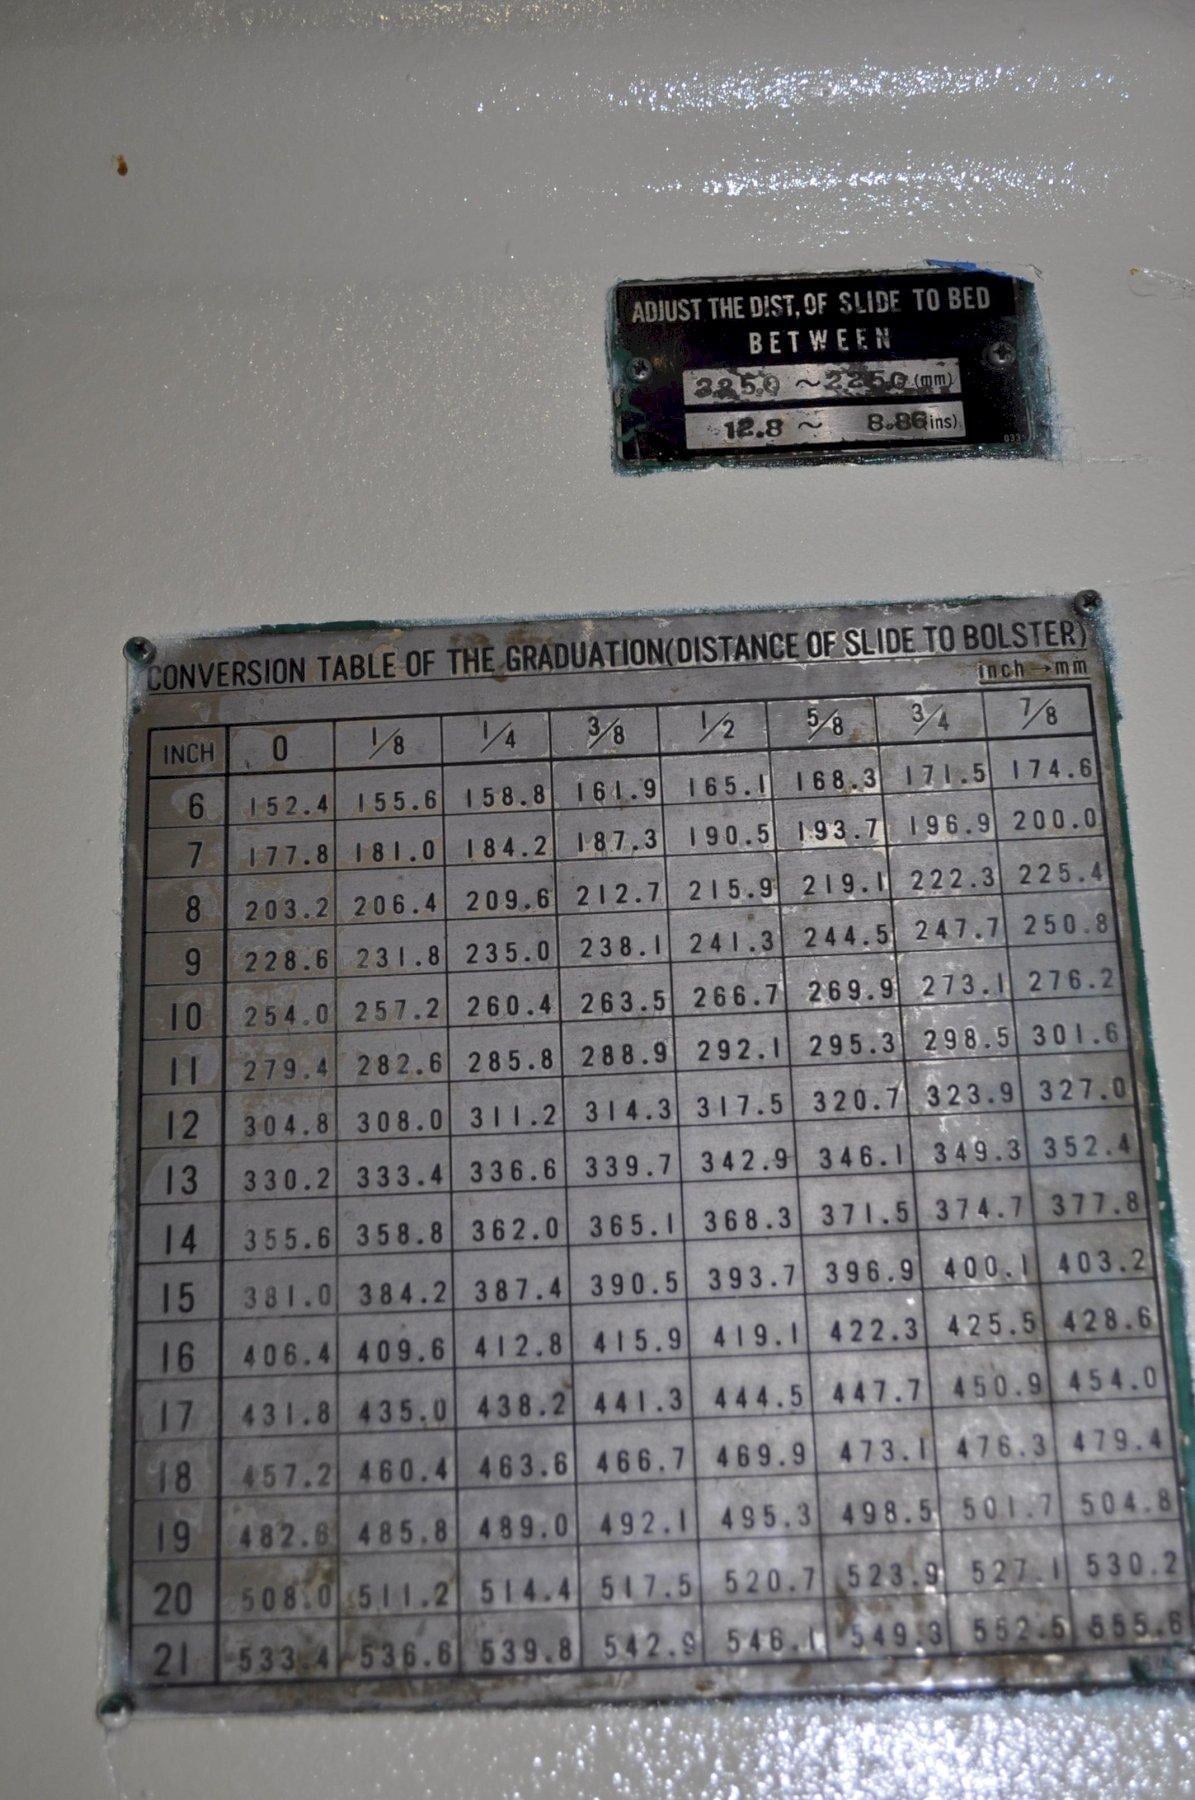 ADJUST THE DIST, OF SLIDE TO BED
BETWEEN
(mm)
12.8 ~ 8.86(ins)
CONVERSION TABLE OF THE GRADUATION(DISTANCE OF SLIDE TO BOLSTER)
inch→mm
INCH 0 1/8 1/4 3/8 1/2 5/8 3/4 7/8
6 152.4 155.6 158.8 161.9 165.1 168.3 171.5 174.6
7 177.8 181.0 184.2 187.3 190.5 193.7 196.9 200.0
8 203.2 206.4 209.6 212.7 215.9 219.1 222.3 225.4
9 228.6 231.8 235.0 238.1 241.3 244.5 247.7 250.8
10 254.0 257.2 260.4 263.5 266.7 269.9 273.1 276.2
11 279.4 282.6 285.8 288.9 292.1 295.3 298.5 301.6
12 304.8 308.0 311.2 314.3 317.5 320.7 323.9 327.0
13 330.2 333.4 336.6 339.7 342.9 346.1 349.3 352.4
14 355.6 358.8 362.0 365.1 368.3 371.5 374.7 377.8
15 381.0 384.2 387.4 390.5 393.7 396.9 400.1 403.2
16 406.4 409.6 412.8 415.9 419.1 422.3 425.5 428.6
17 431.8 435.0 438.2 441.3 444.5 447.7 450.9 454.0
18 457.2 460.4 463.6 466.7 469.9 473.1 476.3 479.4
19 482.6 485.8 489.0 492.1 495.3 498.5 501.7 504.8
20 508.0 511.2 514.4 517.5 520.7 523.9 527.1 530.2
21 533.4 536.6 539.8 542.9 546.1 549.3 552.5 555.6